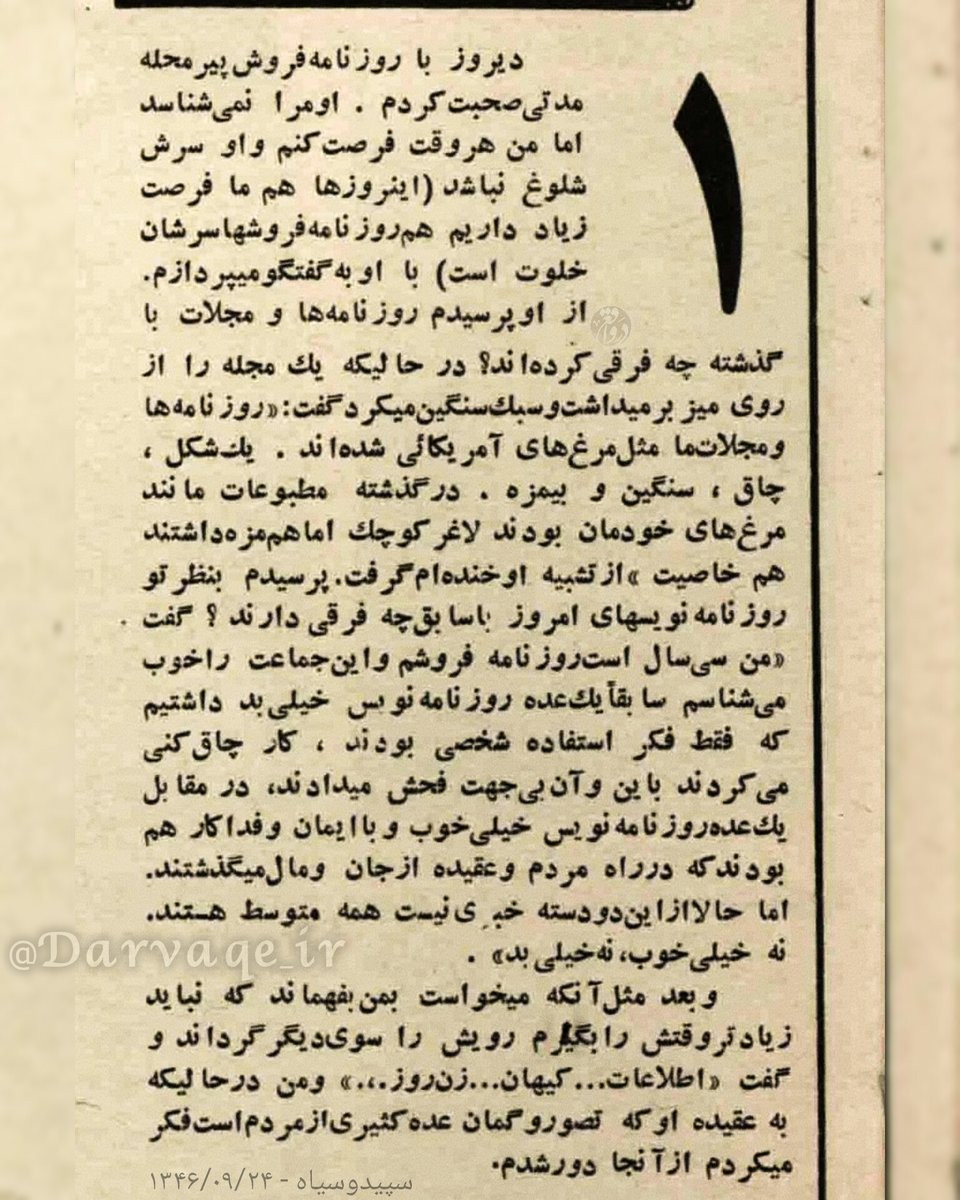 ۱
دیروز با روزنامه‌فروش پیر محله
مدتی صحبت کردم . او مرا نمی‌شناسد
اما من هر وقت فرصت کنم و او سرش
شلوغ نباشد (اینروزها هم ما فرصت
زیاد داریم هم روزنامه‌فروشها سرشان
خلوت است) با او به گفتگو میپردازم.
از او پرسیدم روزنامه‌ها و مجلات با
گذشته چه فرقی کرده‌اند؟ در حالیکه یك مجله را از
روی میز برمیداشت و سبك سنگین میکرد گفت: «روزنامه‌ها
و مجلات ما مثل مرغ‌های آمریکائی شده‌اند . یك شکل ،
چاق ، سنگین و بیمزه . در گذشته مطبوعات مانند
مرغ‌های خودمان بودند لاغر کوچك اما هم مزه داشتند
هم خاصیت» از تشبیه او خنده‌ام گرفت. پرسیدم بنظر تو
روزنامه نویسهای امروز با سابق چه فرقی دارند ؟ گفت
«من سی سال است روزنامه فروشم و این جماعت را خوب
می‌شناسم سابقاً یك عده روزنامه نویس خیلی بد داشتیم
که فقط فکر استفاده شخصی بودند ، کار چاق کنی
می‌کردند باین و آن بی‌جهت فحش میدادند، در مقابل
یك عده روزنامه نویس خیلی خوب و با ایمان و فداکار هم
بودند که در راه مردم و عقیده از جان و مال میگذشتند.
اما حالا از این دو دسته خبری نیست همه متوسط هستند.
نه خیلی خوب، نه خیلی بد» .
و بعد مثل آنکه میخواست بمن بفهماند که نباید
زیادتر وقتش را بگیرم رویش را سوی دیگر گرداند و
گفت «اطلاعات... کیهان... زن روز...» و من در حالیکه
به عقیده او که تصور و گمان عده کثیری از مردم است فکر
میکردم از آنجا دور شدم.
سپیدوسیاه - ۱۳۴۶/۰۹/۲۴
@Darvaqe_ir